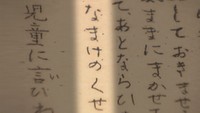 しておきませ
ままにまかせて
て、あとならひ
なまけのくせ
児童に言ひ